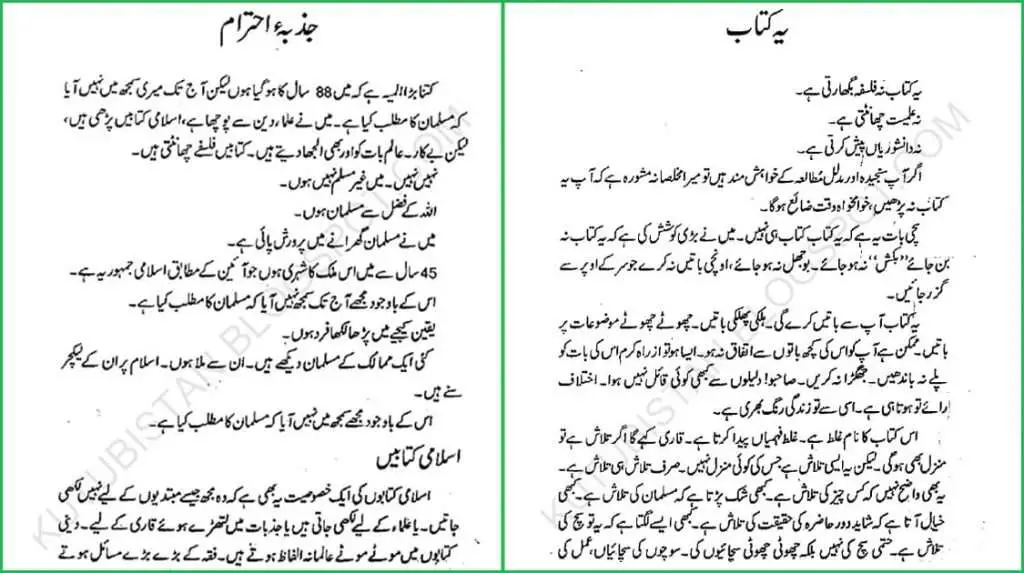 یہ کتاب
یہ کتاب نہ فلسفہ بگھارتی ہے۔
نہ علمیت چھانٹتی ہے۔
نہ دانشوریاں پیش کرتی ہے۔
اگر آپ سنجیدہ اور مدلل مُطالعہ کے خواہش مند ہیں تو میرا مخلصانہ مشورہ ہے کہ آپ یہ
کتاب نہ پڑھیں، خوامخواہ وقت ضائع ہو گا۔
سچی بات یہ ہے کہ یہ کتاب کتاب ہی نہیں۔ میں نے بڑی کوشش کی ہے کہ یہ کتاب نہ
بن جائے ”بکش“ نہ ہو جائے۔ بوجھل نہ ہو جائے، اونچی باتیں نہ کرے جو سر کے اوپر سے
گزر جائیں۔
یہ کتاب آپ سے باتیں کرے گی۔ ہلکی پھلکی باتیں۔ چھوٹے چھوٹے موضوعات پر
باتیں۔ ممکن ہے آپ کو اس کی کچھ باتوں سے اتفاق نہ ہو۔ ایسا ہو تو از راہ کرم اس کی بات کو
پلے نہ باندھیں۔ جھگڑا نہ کریں۔ صاحبو! دلیلوں سے کبھی کوئی قائل نہیں ہوا۔ اختلاف
رائے تو ہوتا ہی ہے۔ اسی سے تو زندگی رنگ بھری ہے۔
اس کتاب کا نام غلط ہے۔ غلط فہمیاں پیدا کرتا ہے۔ قاری کہے گا اگر تلاش ہے تو
منزل بھی ہو گی۔ لیکن یہ ایسی تلاش ہے جس کی کوئی منزل نہیں۔ صرف تلاش ہی تلاش ہے۔
یہ بھی واضح نہیں کہ کس چیز کی تلاش ہے۔ کبھی شک پڑتا ہے کہ مسلمان کی تلاش ہے۔ کبھی
خیال آتا ہے کہ شاید دور حاضرہ کی حقیقت کی تلاش ہے۔ کبھی ایسے لگتا ہے کہ یہ تو سچ کی
تلاش ہے۔ حتمی سچ کی نہیں بلکہ چھوٹی چھوٹی سچائیوں کی۔ سوچوں کی سچائیاں، عمل کی
جذبۂ احترام
کتنا بڑا المیہ ہے کہ میں 88 سال کا ہو گیا ہوں لیکن آج تک میری سمجھ میں نہیں آیا
کہ مسلمان کا مطلب کیا ہے۔ میں نے علماء دین سے پوچھا ہے، اسلامی کتابیں پڑھی ہیں،
لیکن بے کار۔ عالم بات کو اور بھی الجھا دیتے ہیں۔ کتابیں فلسفے چھانٹتی ہیں۔
نہیں نہیں۔ میں غیر مسلم نہیں ہوں۔
اللہ کے فضل سے مسلمان ہوں۔
میں نے مسلمان گھرانے میں پرورش پائی ہے۔
45 سال سے میں اس ملک کا شہری ہوں جو آئین کے مطابق اسلامی جمہوریہ ہے۔
اس کے باوجود مجھے آج تک سمجھ نہیں آیا کہ مسلمان کا مطلب کیا ہے۔
یقین کیجیے میں پڑھا لکھا فرد ہوں۔
کئی ایک ممالک کے مسلمان دیکھے ہیں۔ ان سے ملا ہوں۔ اسلام پر ان کے لیکچر
سنے ہیں۔
اس کے باوجود مجھے سمجھ میں نہیں آیا کہ مسلمان کا مطلب کیا ہے۔
اسلامی کتابیں
اسلامی کتابوں کی ایک خصوصیت یہ بھی ہے کہ وہ مجھ جیسے مبتدیوں کے لیے نہیں لکھی
جاتیں۔ یا علماء کے لیے لکھی جاتی ہیں یا جذبات میں لتھڑے ہوئے قاری کے لیے۔ دینی
کتابوں میں موٹے موٹے عالمانہ الفاظ ہوتے ہیں۔ فقہ کے بڑے بڑے مسائل ہوتے
KUTUBISTAN.BLOGSPOT.COM
KUTUBISTAN.BLOGSPOT.COM